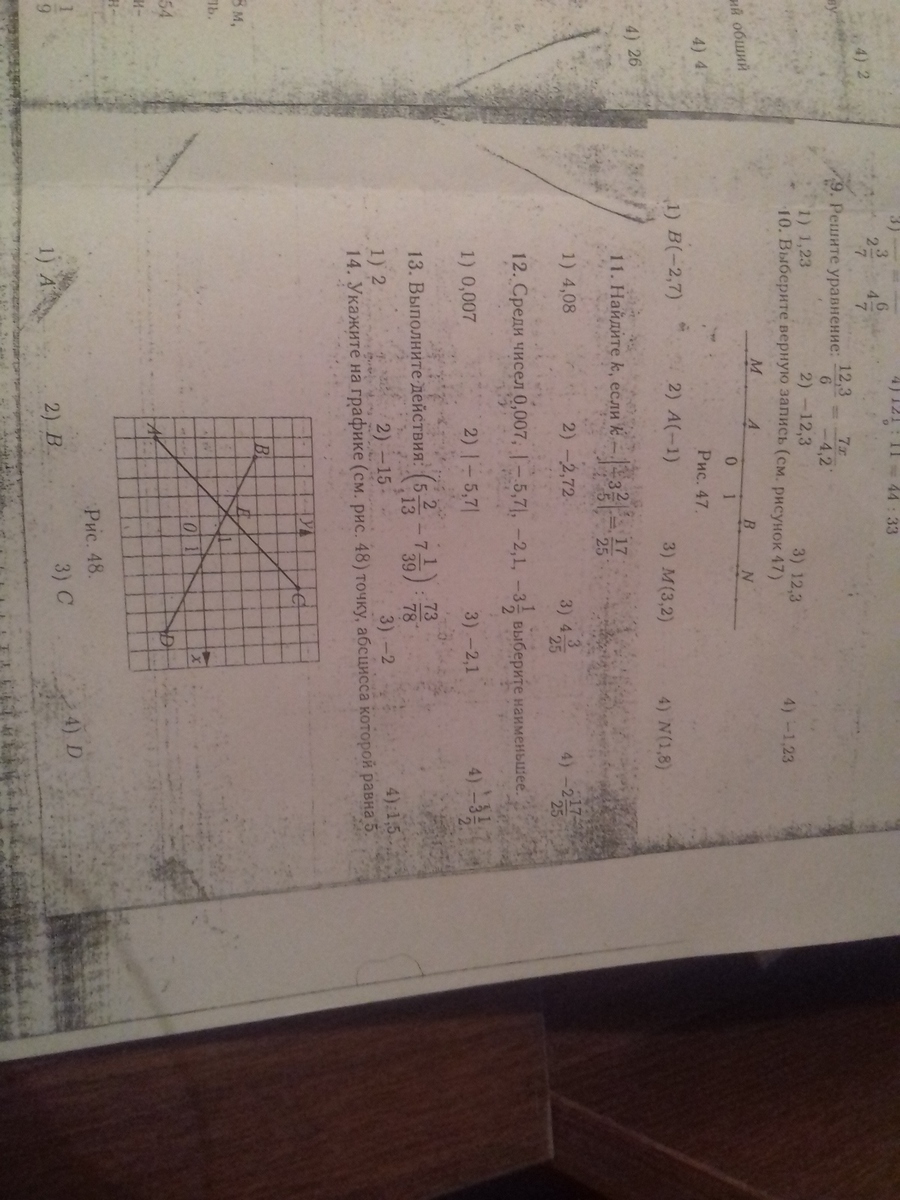 3)
6
4) 12,1 : 11 = 44 : 33
2 3/7
4 6/7
9. Решите уравнение: 12,3/6 = 7x/−4,2.
1) 1,23 2) −12,3 3) 12,3 4) −1,23
10. Выберите верную запись (см. рисунок 47)
M A 0 1 B N
Рис. 47.
1) B(−2,7) 2) A(−1) 3) M(3,2) 4) N(1,8)
11. Найдите k, если k − |−3 2/5| = 17/25.
1) 4,08 2) −2,72 3) 4 3/25 4) −2 17/25
12. Среди чисел 0,007, | − 5,7|, −2,1, −3 1/2 выберите наименьшее.
1) 0,007 2) | − 5,7| 3) −2,1 4) −3 1/2
13. Выполните действия: (5 2/13 − 7 1/39) : 73/78.
1) 2 2) −15 3) −2 4) 1,5
14. Укажите на графике (см. рис. 48) точку, абсцисса которой равна 5.
y
C
B
E
1
0 1 x
A
D
Рис. 48.
1) A 2) B 3) C 4) D
4) 2
ий общий
4) 4
4) 26
8 м,
ль.
54
и-
н-
1/9